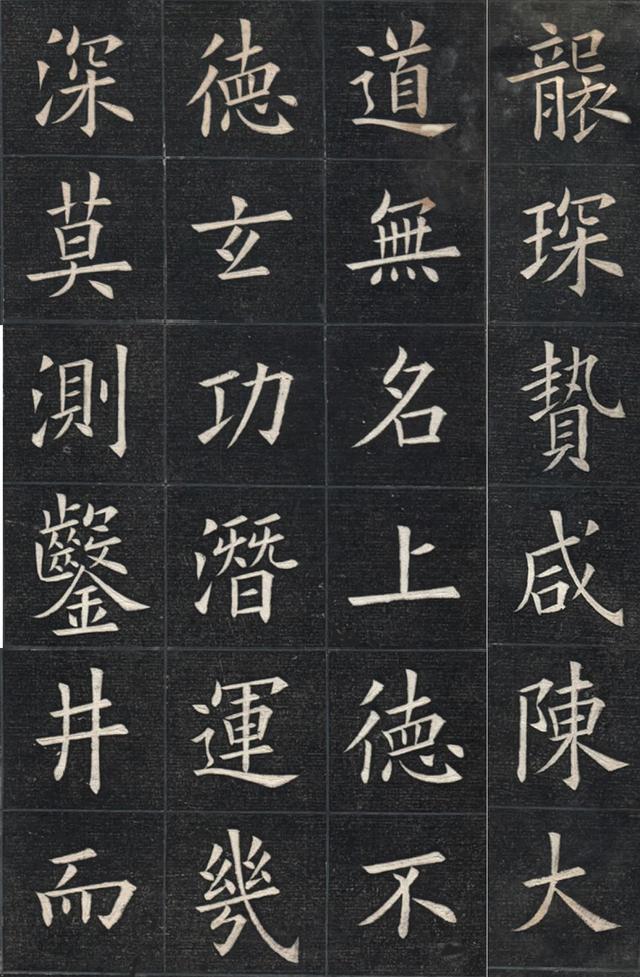 龔琛贄咸陳大
道無名上德不
德玄功潛運幾
深莫測鑿井而